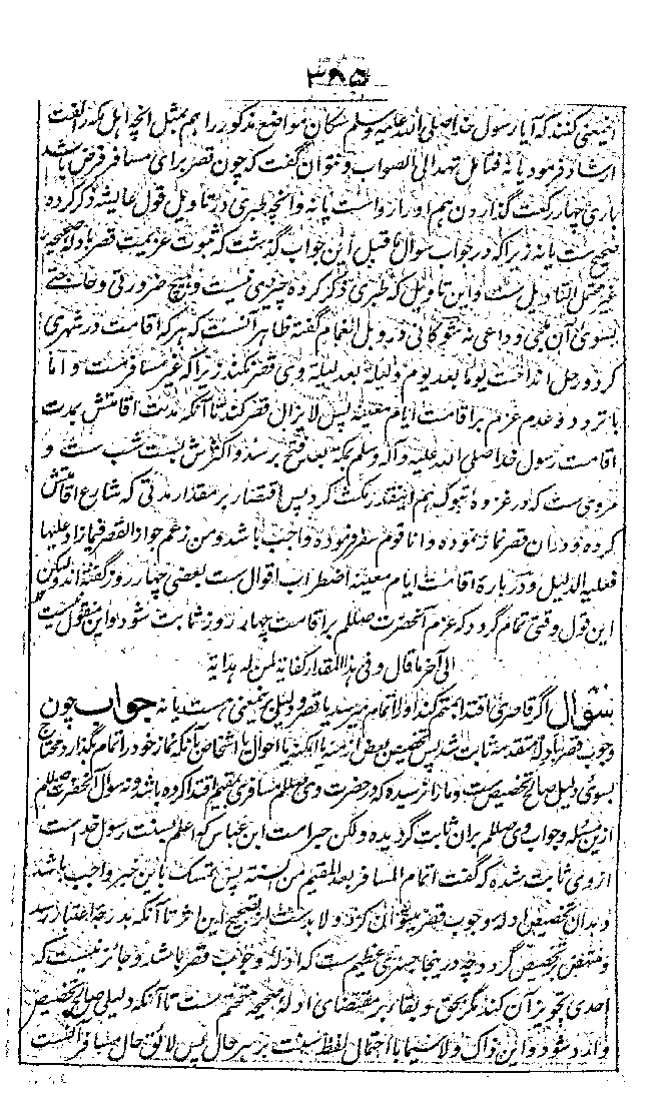 ۳۸۵
اینمعنی کنند که آیا رسول خدا صلی الله علیه وسلم سکان مواضع مذکور را هم مثل آنچه اهل مکه را گفت
ارشاد فرمود یا نه فتامل تهد الی الصواب و نتوان گفت که چون قصر برای مسافر فرض باشد
باری چهار رکعت گذاردن هم او را رواست یا نه و آنچه طبری در تاویل قول عایشه ذکر کرده
صحیح ست یا نه زیرا که در جواب سوال ما قبل این جواب گذشت که ثبوت عزیمت قصر بادله صحیحه
غیر محتمل التاویل ست و این تاویل که طبری ذکر کرده چیزی نیست و هیچ ضرورتی و حاجتی
بسوی آن ملجی و داعی نه شوکانی در وبل الغمام گفته ظاهر آنست که هر که اقامت در شهری
کرد و رحل انداخت یوما بعد یوم و لیلة بعد لیلة وی قصر نکند زیرا که غیر مسافرست و اما
با تردد و عدم عزم بر اقامت ایام معینه پس لا یزال قصر کند تا آنکه مدت اقامتش بمدت
اقامت رسول خدا صلی الله علیه و آله وسلم بمکه بعد فتح برسد و اکثرش بست شب ست و
مروی ست که در غزوه تبوک هم اینقدر مکث کرد پس اقتصار بر مقدار مدتی که شارع اقامتش
کرده و دران قصر نماز نموده و انا قوم سفر فرموده واجب باشد و من زعم جواز القصر فیما زاد علیها
فعلیه الدلیل و در بارهٔ اقامت ایام معینه اضطراب اقوال ست بعضی چهار روز گفته اند ولیکن
این قول وقتی تمام گردد که عزم آنحضرت صللم بر اقامت چهار روز ثابت شود و این منقول نیست
الی آخر ما قال و فی هذا المقدار کفایة لمن له هدایة
سؤال اگر قاصری اقتدا بمتمم کند او را اتمام میرسد یا قصر و دلیلی برینمعنی هست یا نه جواب چون
وجوب قصر بادله متقدمه ثابت شد پس تخصیص بعض ازمنه یا امکنه یا احوال یا اشخاص بآنکه نماز خود را تمام بگذارد محتاج
بسوی دلیل صالح تخصیص ست و ما را نرسیده که در حضرت وی صللم مسافری بمقیم اقتدا کرده باشد و نه سوال آنحضرت صللم
ازین مسئله و جواب وی صللم بران ثابت گردیده ولکن حبر امت ابن عباس که اعلم بسنت رسول خداست
از وی ثابت شده که گفت اتمام المسافر بعد المقیم من السنة پس تمسک باین خبر واجب باشد
و بدان تخصیص ادلهٔ وجوب قصر میتوان کرد و لا بدست از تصحیح این اثر تا آنکه بدرجهٔ اعتبار رسد
و منتهض بر تخصیص گردد چه در ینجا جسری عظیم ست که ادلهٔ وجوب قصر باشد و جائز نیست که
احدی تجویز آن کند مگر بحق و بقا بر مقتضای ادلهٔ صحیحه متحتم ست تا آنکه دلیلی صالح تخصیص
وارد شود و این ذاک و لا سیما با احتمال لفظ سنت بر سر حال پس لائق حال مسافر آنست